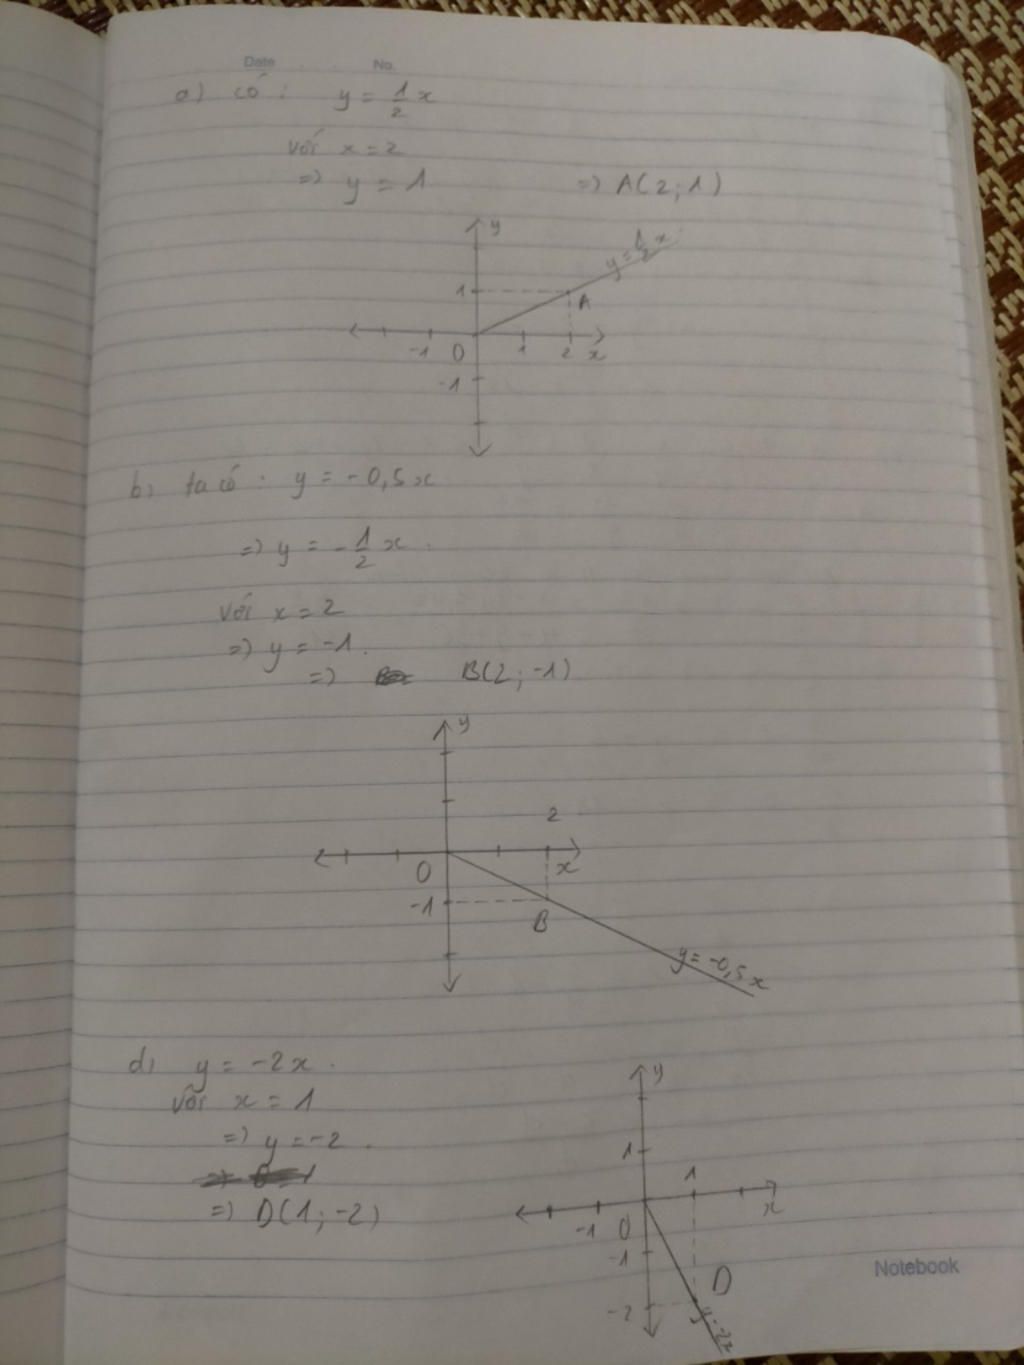 Date No.
a) có : y = 1/2 x
với x = 2
=) y = 1 =) A(2; 1)
y
y = 1/2 x
1
A
-1 O 1 2 x
-1
b) ta có : y = -0,5x
=) y = -1/2 x.
với x = 2
=) y = -1.
=) B(2; -1)
y
2
O x
-1
B
y = -0,5x
d) y = -2x.
với x = 1
=) y = -2.
=) D(1; -2)
y
1
1
-1 O x
-1
D
-2
y=-2x
Notebook